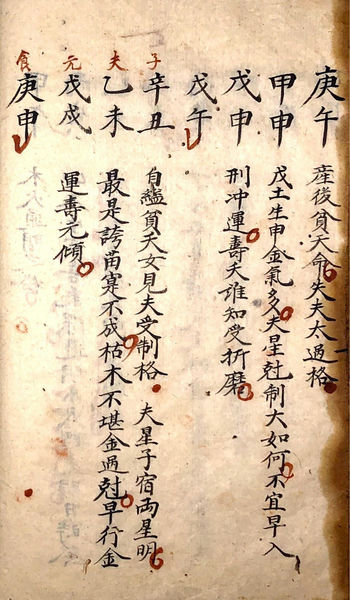 庚午 産後貧夭命失夫太過格
甲申 戊土生申金氣多夫星尅制大如何不宜早入
戊申 刑冲運壽夭誰知受折磨
戊午
子 辛丑 自縊貧夭女見夫受制格 夫星子宿両星明
夫 乙未 最是誇苗實不成枯木不堪金過尅早行金
元 戊戌 運壽元傾
食 庚申